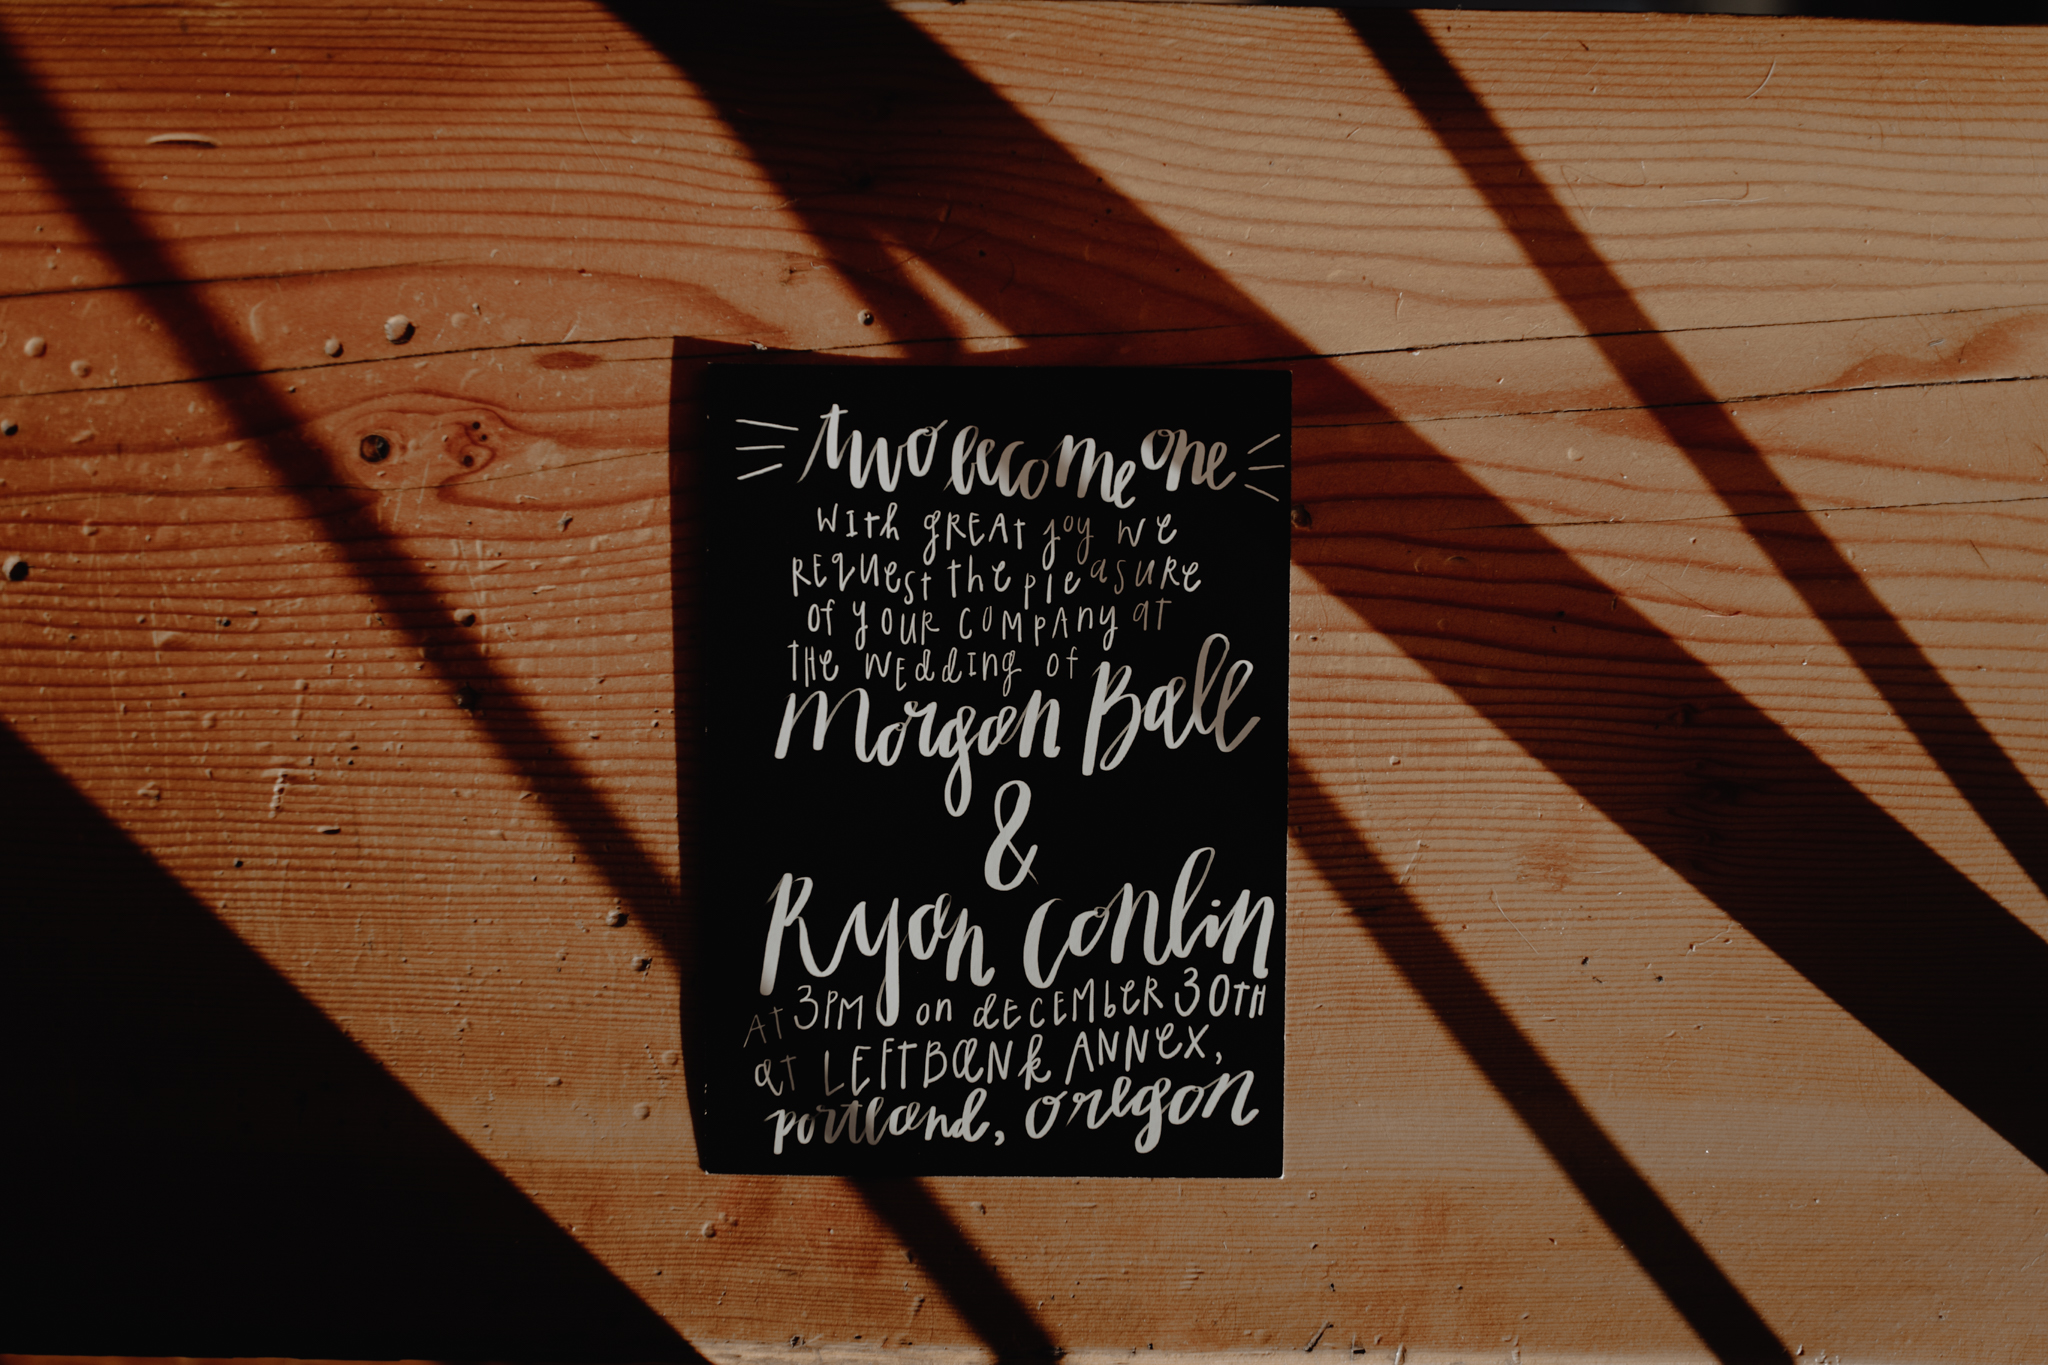 two become one
With GREAt joy we
REQUEst the pleasURe
Of yOUR COMPANy at
tHe WEddINg of
Morgan Ball
&
Ryan Conlin
At 3PM on dECEMbER 30TH
at LEFTBaNk ANNex,
portland, oregon